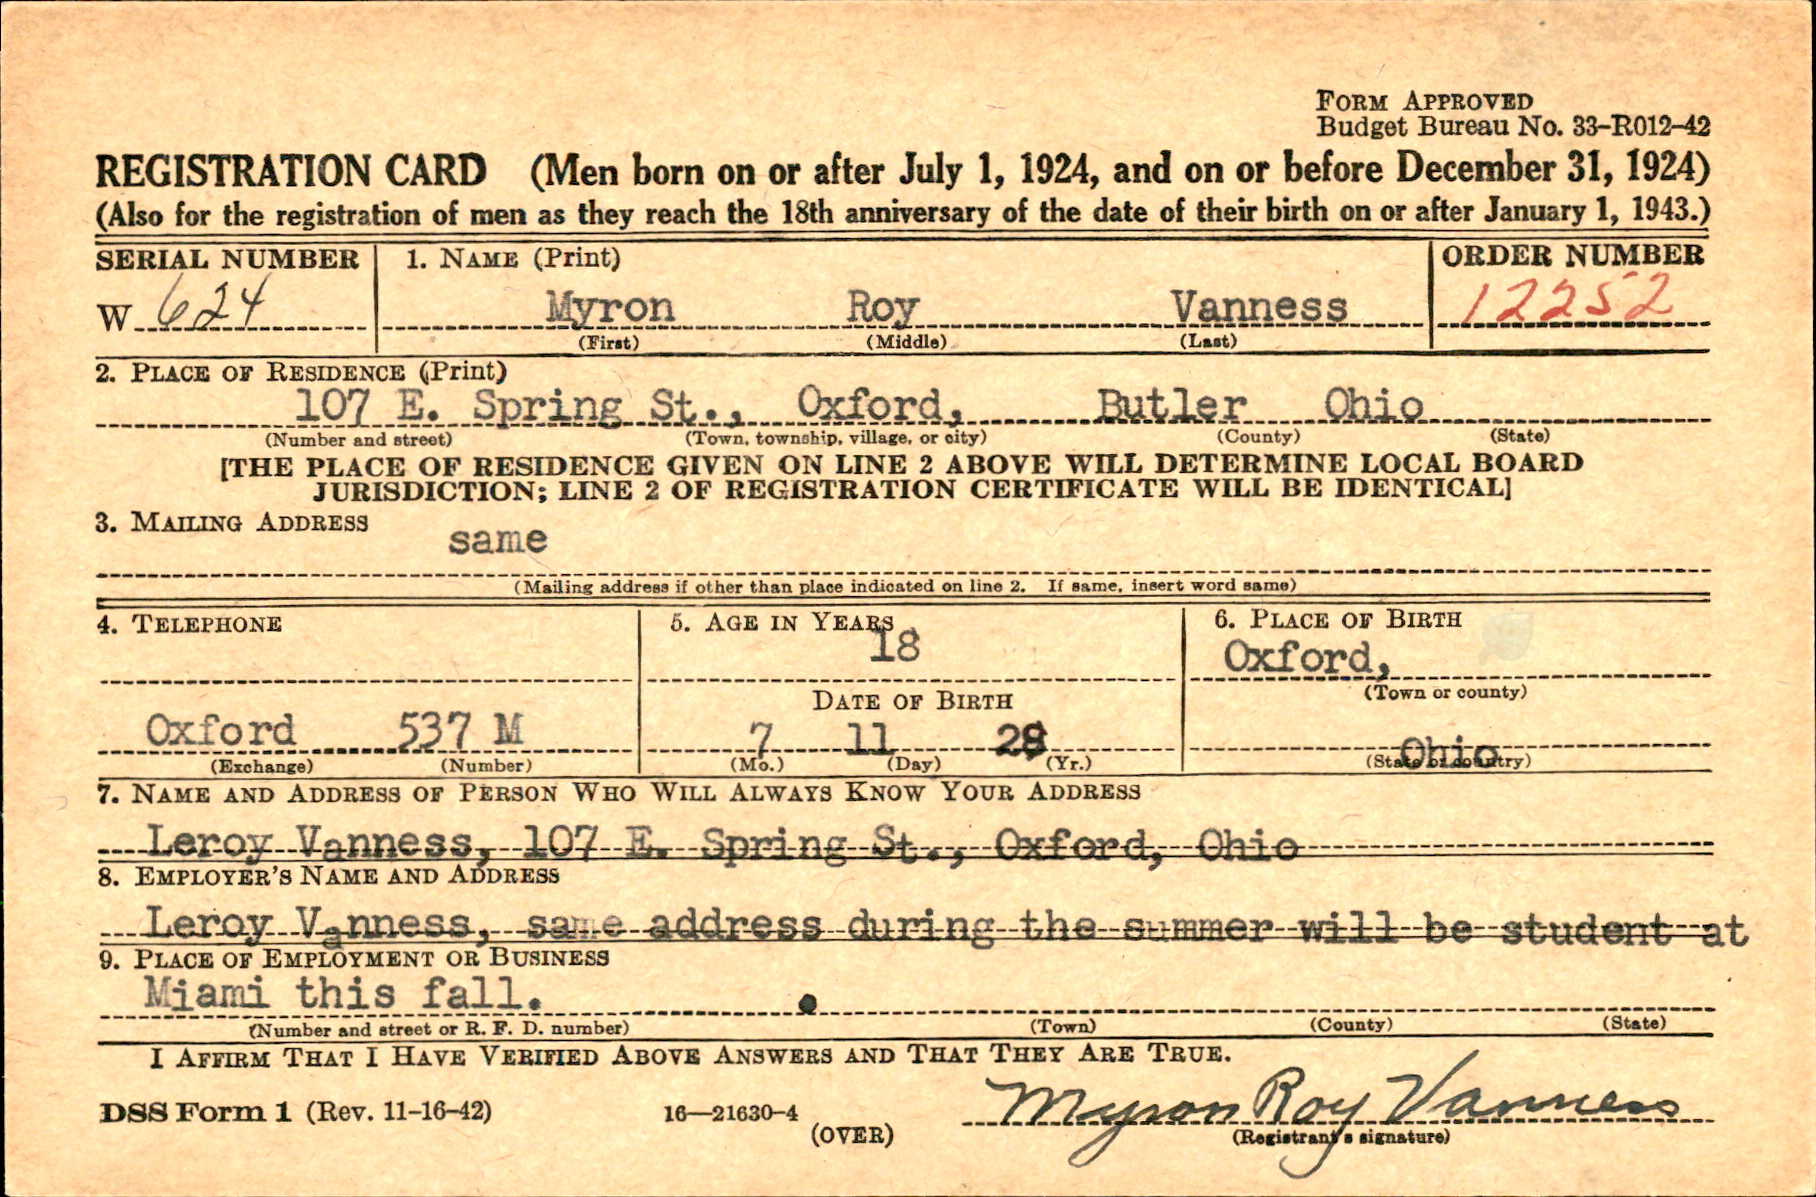 FORM APPROVED
Budget Bureau No. 33-R012-42
REGISTRATION CARD (Men born on or after July 1, 1924, and on or before December 31, 1924)
(Also for the registration of men as they reach the 18th anniversary of the date of their birth on or after January 1, 1943.)
SERIAL NUMBER 1. NAME (Print) ORDER NUMBER
W 624 Myron Roy Vanness 12252
(First) (Middle) (Last)
2. PLACE OF RESIDENCE (Print)
107 E. Spring St., Oxford, Butler Ohio
(Number and street) (Town, township, village, or city) (County) (State)
[THE PLACE OF RESIDENCE GIVEN ON LINE 2 ABOVE WILL DETERMINE LOCAL BOARD
JURISDICTION; LINE 2 OF REGISTRATION CERTIFICATE WILL BE IDENTICAL]
3. MAILING ADDRESS
same
(Mailing address if other than place indicated on line 2. If same, insert word same)
4. TELEPHONE 5. AGE IN YEARS 6. PLACE OF BIRTH
18 Oxford,
DATE OF BIRTH (Town or county)
Oxford 537 M 7 11 Ohio
(Exchange) (Number) (Mo.) (Day) (Yr.) (State or country)
7. NAME AND ADDRESS OF PERSON WHO WILL ALWAYS KNOW YOUR ADDRESS
Leroy Vanness, 107 E. Spring St., Oxford, Ohio
8. EMPLOYER'S NAME AND ADDRESS
Leroy Vanness, same address during the summer will be student at
9. PLACE OF EMPLOYMENT OR BUSINESS
Miami this fall.
(Number and street or R. F. D. number) (Town) (County) (State)
I AFFIRM THAT I HAVE VERIFIED ABOVE ANSWERS AND THAT THEY ARE TRUE.
DSS Form 1 (Rev. 11-16-42) 16—21630-4 Myron Roy Vanness
(OVER) (Registrant's signature)